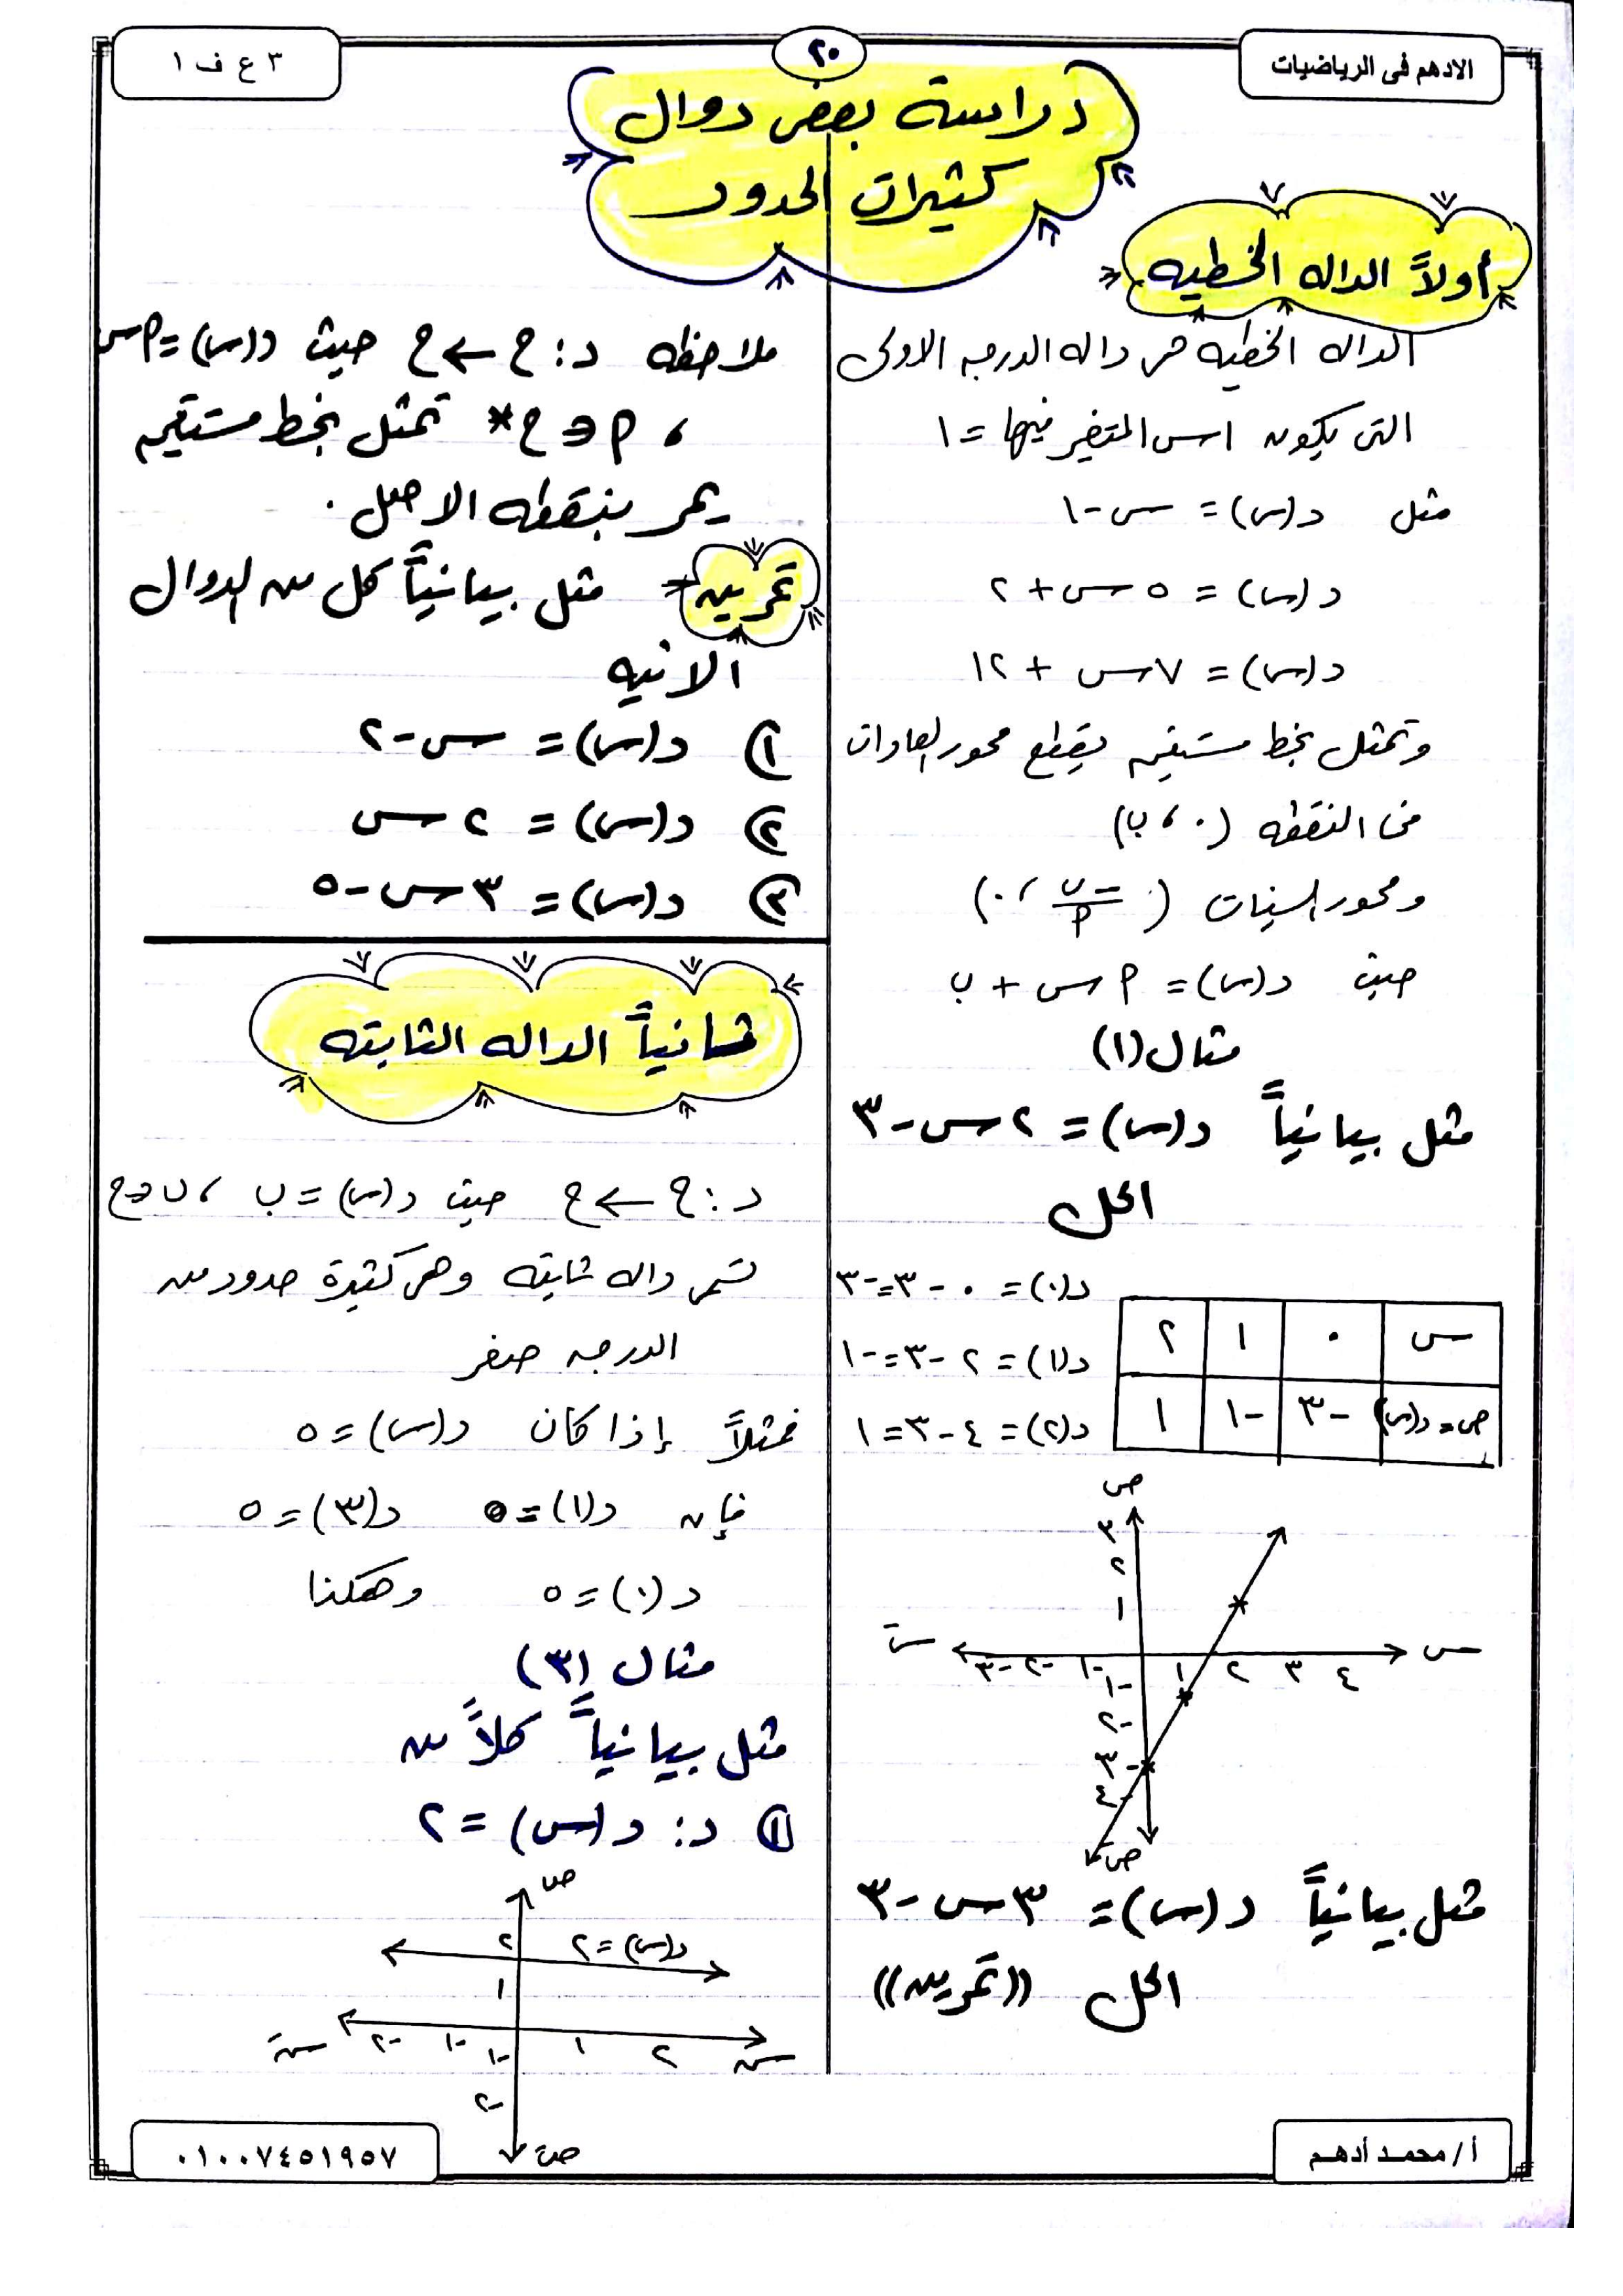 الادهم فى الرياضيات
٢٠
٣ ع ف ١
دراسة بعض دوال
كثيرات الحدود
أولاً الداله الخطيه
الداله الخطيه هى داله الدرجه الاولى
التى يكون اس المتغير فيها = ١
مثل د(س) = س - ١
د(س) = ٥س + ٢
د(س) = ٧س + ١٢
وتمثل بخط مستقيم يقطع محور الصادات
فى النقطه (٠ ، ب)
ومحور السينات (-ب/أ ، ٠)
حيث د(س) = أس + ب
مثال (١)
مثل بيانياً د(س) = ٢س - ٣
الحل
د(٠) = ٠ - ٣ = -٣
د(١) = ٢ - ٣ = -١
د(٢) = ٤ - ٣ = ١
س ٠ ١ ٢
ص = د(س) -٣ -١ ١
ص
٣
٢
١
سَ -٣ -٢ -١ ١ ٢ ٣ ٤ س
-١
-٢
-٣
-٤
صَ
مثل بيانياً د(س) = ٣س - ٣
الحل ((تمرين))
ملاحظه د: ح ← ح حيث د(س) = أس
، أ ∈ ح* تمثل بخط مستقيم
يمر بنقطه الاصل .
تمرين مثل بيانياً كل من الدوال
الاتيه
١ د(س) = س - ٢
٢ د(س) = ٢س
٣ د(س) = ٣س - ٥
ثانياً الداله الثابته
د: ح ← ح حيث د(س) = ب ، ب ∈ ح
تسمى داله ثابته وهى كثيرة حدود من
الدرجه صفر
فمثلاً إذا كان د(س) = ٥
فإن د(١) = ٥ د(٣) = ٥
د(٠) = ٥ وهكذا
مثال (٣)
مثل بيانياً كلاً من
١ د: د(س) = ٢
ص
٢ د(س) = ٢
١
سَ -٢ -١ ١ ٢ س
-١
-٢
صَ
أ/ محمد أدهم
٠١٠٠٧٤٥١٩٥٧